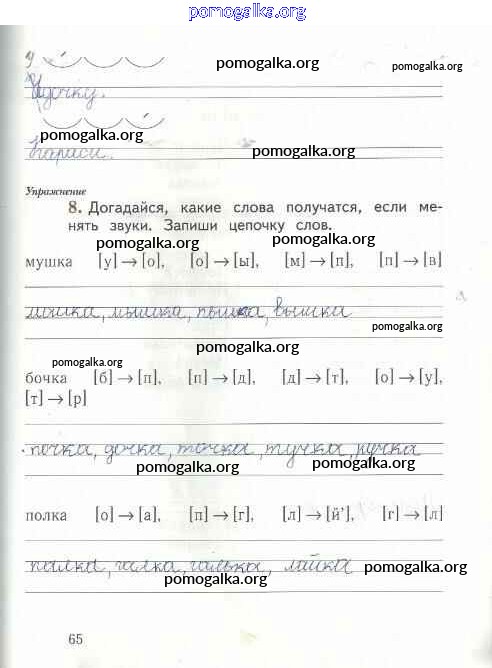 pomogalka.org
у
pomogalka.org
pomogalka.org
Удочку.
pomogalka.org
Караси.
pomogalka.org
Упражнение
8. Догадайся, какие слова получатся, если ме-
нять звуки. Запиши цепочку слов.
pomogalka.org
pomogalka.org
мушка [у] → [о], [о] → [ы], [м] → [п], [п] → [в]
мошка, мышка, пышка, вышка
pomogalka.org
pomogalka.org
pomogalka.org
бочка [б] → [п], [п] → [д], [д] → [т], [о] → [у],
[т] → [р]
почка, дочка, точка, тучка, ручка
pomogalka.org
pomogalka.org
полка [о] → [а], [п] → [г], [л] → [й'], [г] → [л]
палка, галка, галька, лайка
pomogalka.org
pomogalka.org
65